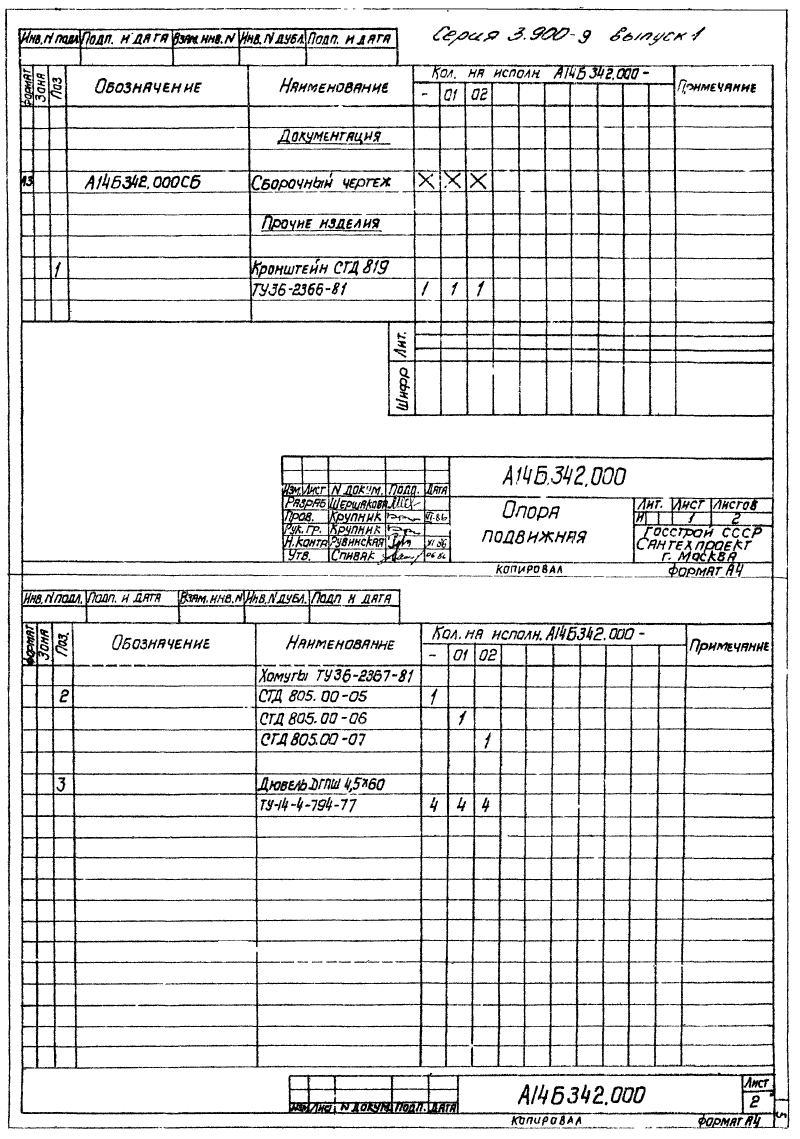 Серия 3.900-9 выпуск 1
Инв. N подл Подп. и дата Взам. инв. N Инв. N дубл. Подп. и дата
Формат Зона Поз Обозначение Наименование Кол. на исполн. А14Б342.000 - Примечание
- 01 02
Документация
А3 А14Б342.000СБ Сборочный чертеж X X X
Прочие изделия
1 Кронштейн СТД 819
ТУ36-2366-81 1 1 1
Лит.
Шифр
А14Б.342.000
Изм. Лист N докум. Подп. Дата
Разраб Шершакова
Пров. Крупник VI.86
Рук. гр. Крупник
Н. контр Рувинская VI 86
Утв. Спивак 06 86
Опора
подвижная
Лит. Лист Листов
И 1 2
Госстрой СССР
Сантехпроект
г. Москва
Копировал Формат А4
Инв. N подл. Подп. и дата Взам. инв. N Инв. N дубл. Подп. и дата
Формат Зона Поз. Обозначение Наименование Кол. на исполн. А14Б342.000 - Примечание
- 01 02
Хомуты ТУ36-2367-81
2 СТД 805.00-05 1
СТД 805.00-06 1
СТД 805.00-07 1
3 Дюбель ДГПШ 4,5x60
ТУ-14-4-794-77 4 4 4
Изм Лист N докум. Подп. Дата
А14Б342.000
Лист
2
Копировал Формат А4